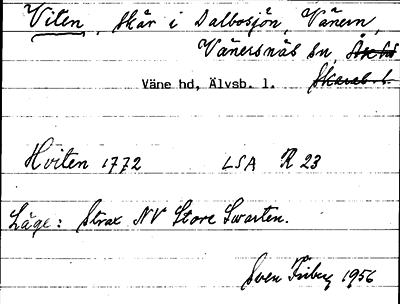 Viten, skär i Dalbosjön, Vänern,
Vänersnäs sn,
Väne hd, Älvsb. l. Skarab. l.
Hviten 1772 LSA R 23
Läge: Strax NV Store Svarten.
Sven Friberg 1956